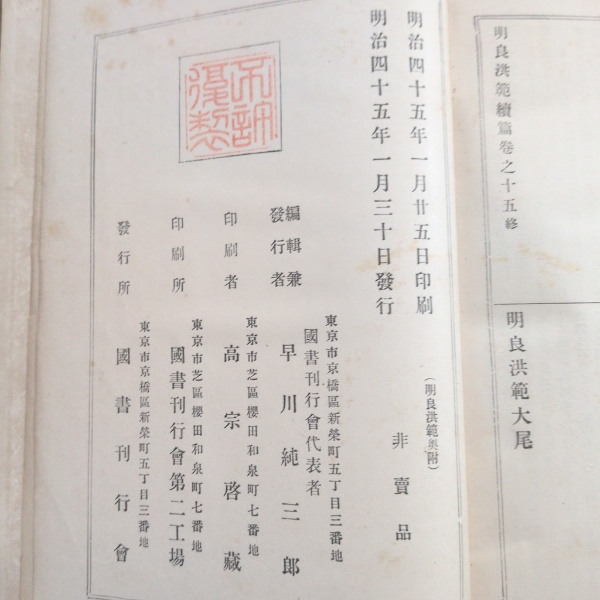 明良洪範續篇卷之十五終
明良洪範大尾
明治四十五年一月廿五日印刷
明治四十五年一月三十日發行
（明良洪範奥附）
非賣品
不許
複製
編輯兼
發行者
東京市京橋區新榮町五丁目三番地
國書刊行會代表者
早川純三郎
印刷者
東京市芝區櫻田和泉町七番地
高宗啓藏
印刷所
東京市芝區櫻田和泉町七番地
國書刊行會第二工場
發行所
東京市京橋區新榮町五丁目三番地
國書刊行會